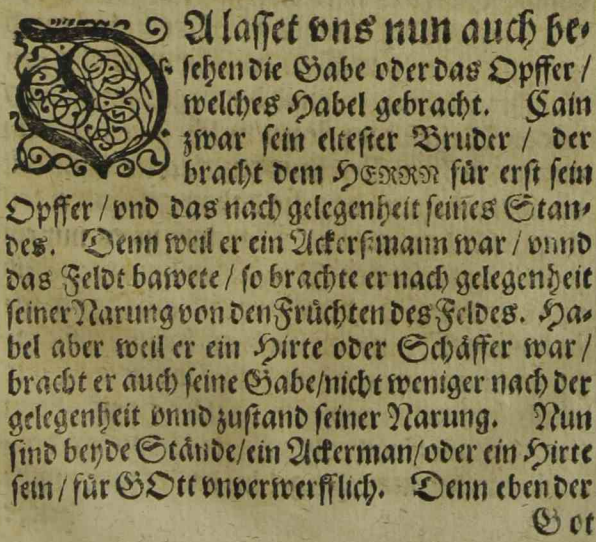 DA lasset vns nun auch be-
sehen die Gabe oder das Opffer /
welches Habel gebracht. Cain
zwar sein eltester Bruder / der
bracht dem HERRN für erst sein
Opffer / vnd das nach gelegenheit seines Stan-
des. Denn weil er ein Ackerßmann war / vnnd
das Feldt bawete / so brachte er nach gelegenheit
seiner Narung von den Früchten des Feldes. Ha-
bel aber weil er ein Hirte oder Schäffer war /
bracht er auch seine Gabe / nicht weniger nach der
gelegenheit vnnd zustand seiner Narung. Nun
sind beyde Stände / ein Ackerman / oder ein Hirte
sein / für GOtt vnverwerfflich. Denn eben der
Got